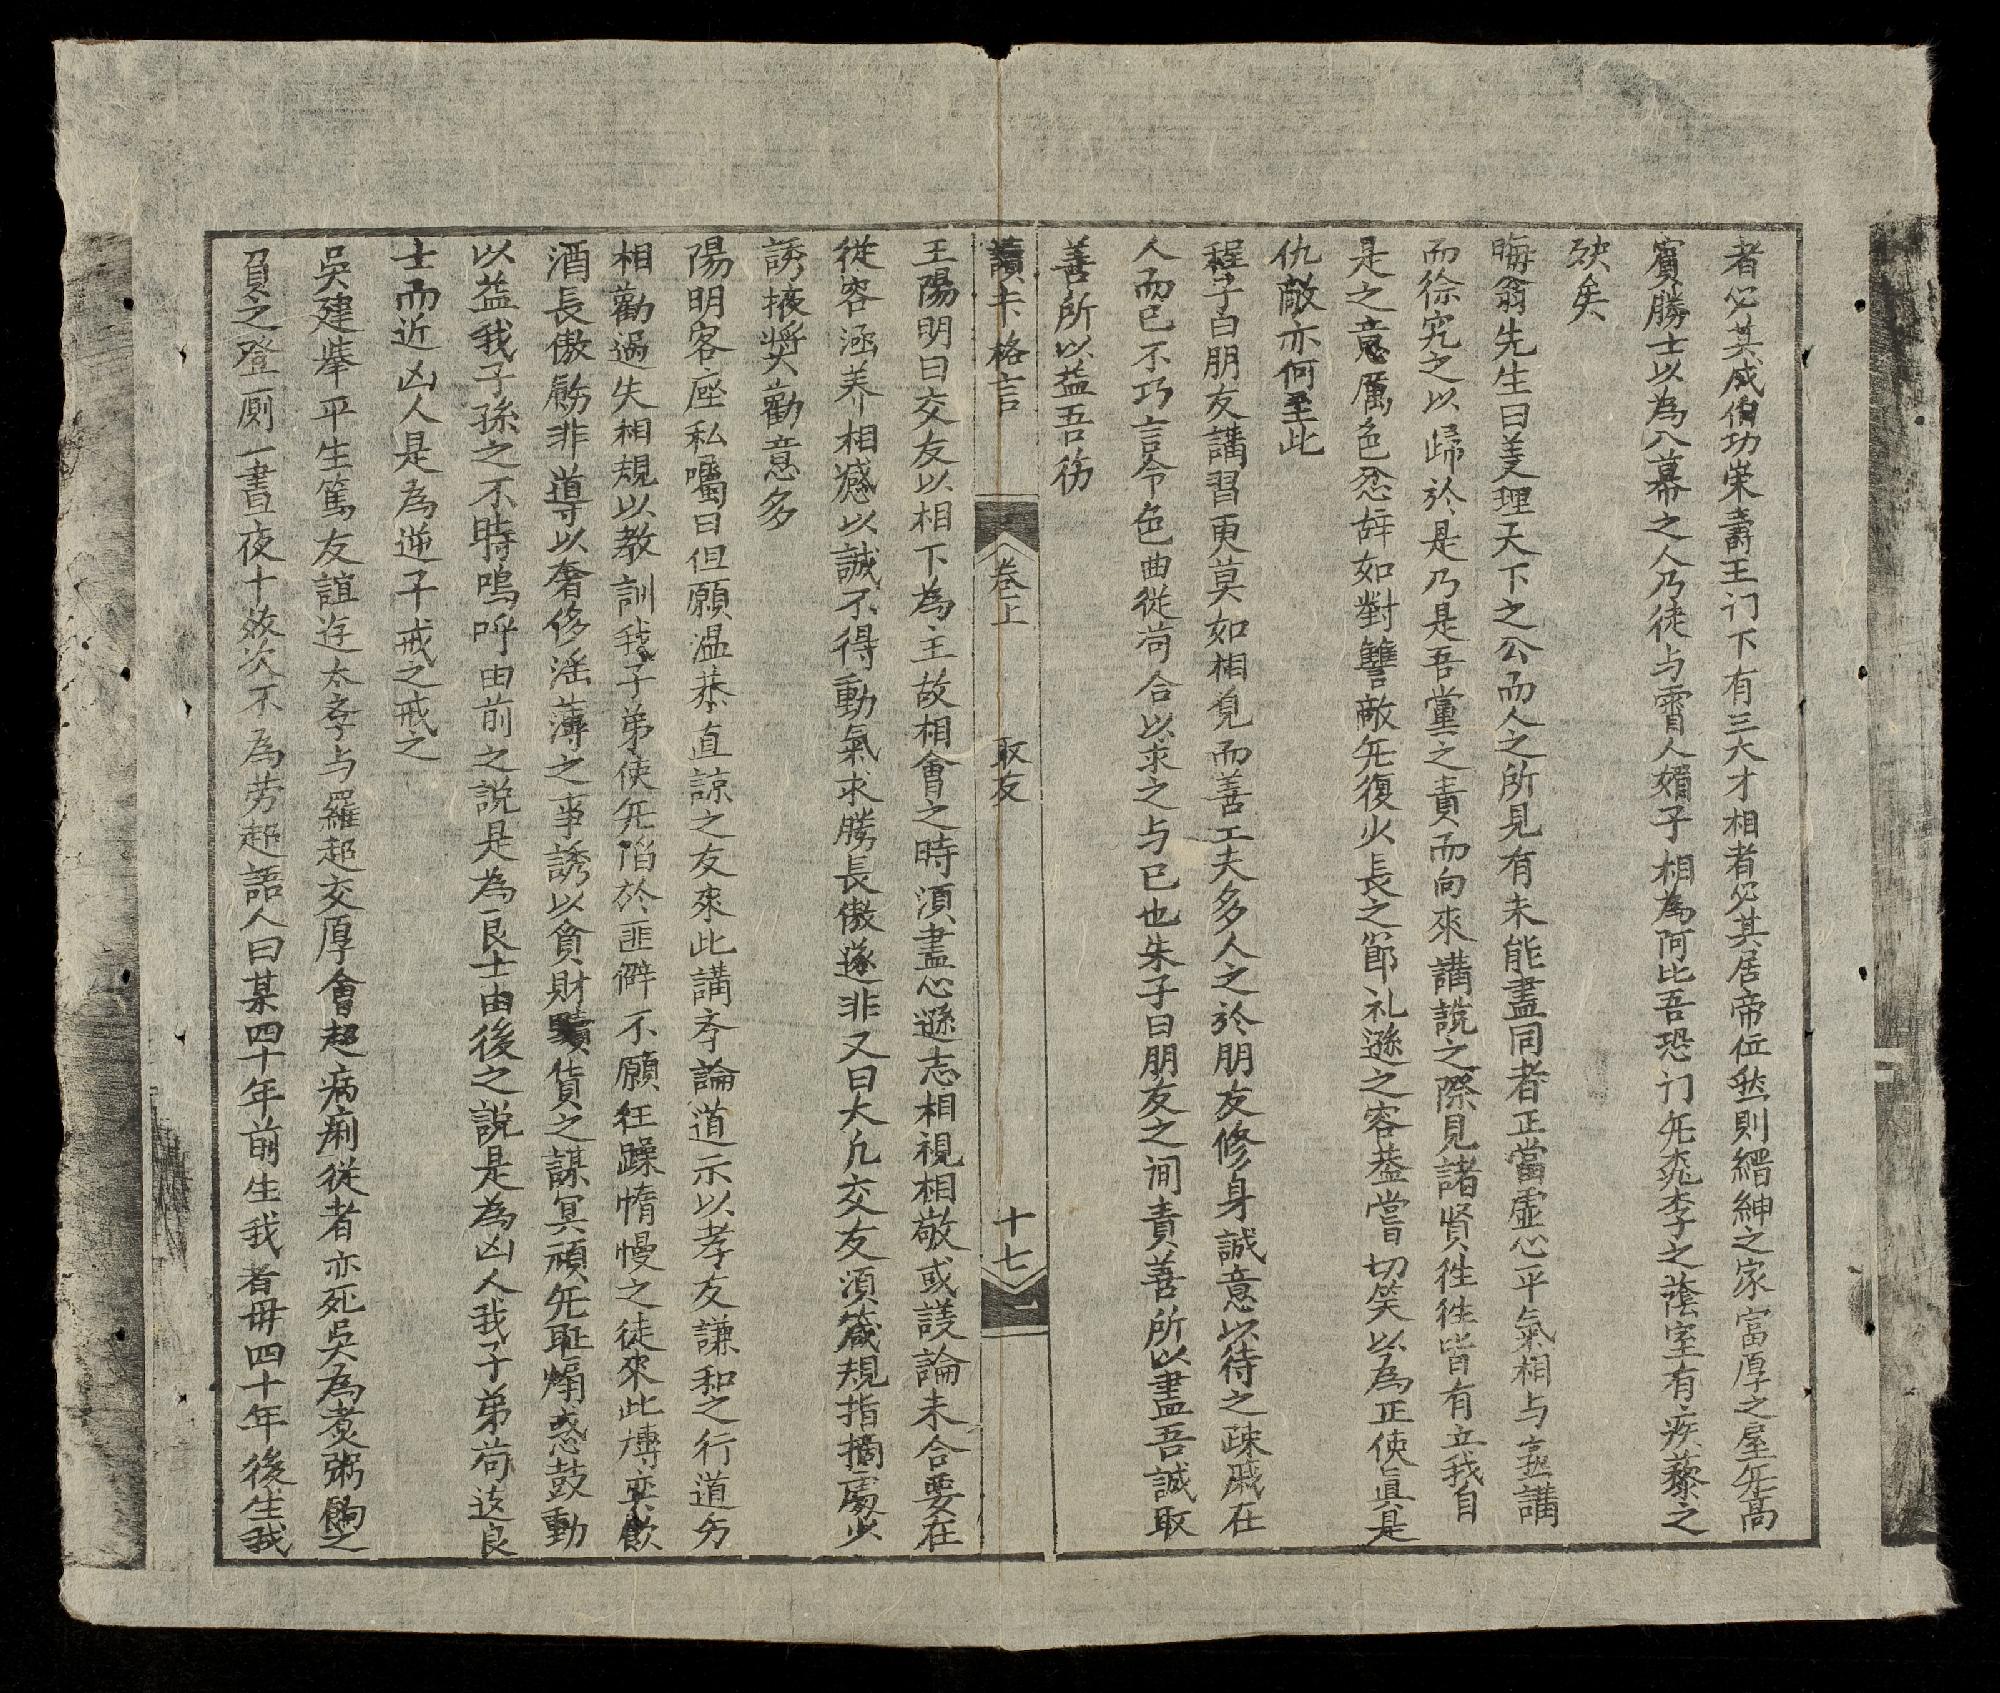 者必其咸伯功荣壽王门下有三大才相者必其居帝位然則縉紳之家富厚之屋旡高
賓勝士以為入幕之人乃徒与霄人媚子相為阿比吾恐门旡桃李之蔭室有疾藜之
殃矣
晦翁先生曰义理天下之公而人之所見有未能盡同者正當虚心平氣相与孰講
而徐究之以歸於是乃是吾黨之責而向來講說之際見諸贤徃徃皆有立我自
是之意厲色忿辞如對讐敵旡復火長之節礼遜之容葢嘗切笑以為正使眞是
仇敵亦何至此
程子曰朋友講習更莫如相覌而善工夫多人之於朋友修身誠意以待之疎戚在
人而已不巧言令色曲從苟合以求之与已也朱子曰朋友之间責善所以盡吾誠取
善所以益吾徳
讀卡格言 卷上 取友 十七
王陽明曰交友以相下為主故相會之時湏盡心遜志相視相敬或議論未合要在
從容涵养相感以誠不得動氣求勝長傲遂非又曰大凢交友湏箴規指摘處少
誘掖奨勸意多
陽明客座私囑曰但願温恭直諒之友來此講孝論道示以孝友謙和之行道为
相勸過失相規以教訓我子弟使旡陷於匪僻不願狂躁惰慢之徒來此博奕飲
酒長傲餙非導以奢侈滛薄之事誘以貪財黷貨之謀冥頑旡耻煽惑鼓動
以益我子孫之不時嗚呼由前之說是為良士由後之說是為凶人我子弟苟遠良
士而近凶人是為逆子戒之戒之
吳建舉平生篤友誼逰太孝与羅超交厚會超病痢從者亦死吳為煮粥餉之
負之登厠一晝夜十数次不為劳超語人曰某四十年前生我者毋四十年後生我